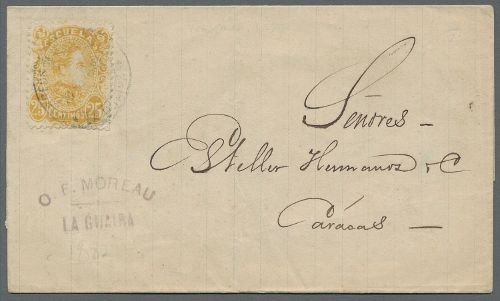 ESCUELAS
25 25
CENTIMOS
Señores —
Esteller Hermanos & C
Carácas —
O. F. MOREAU
LA GUAIRA